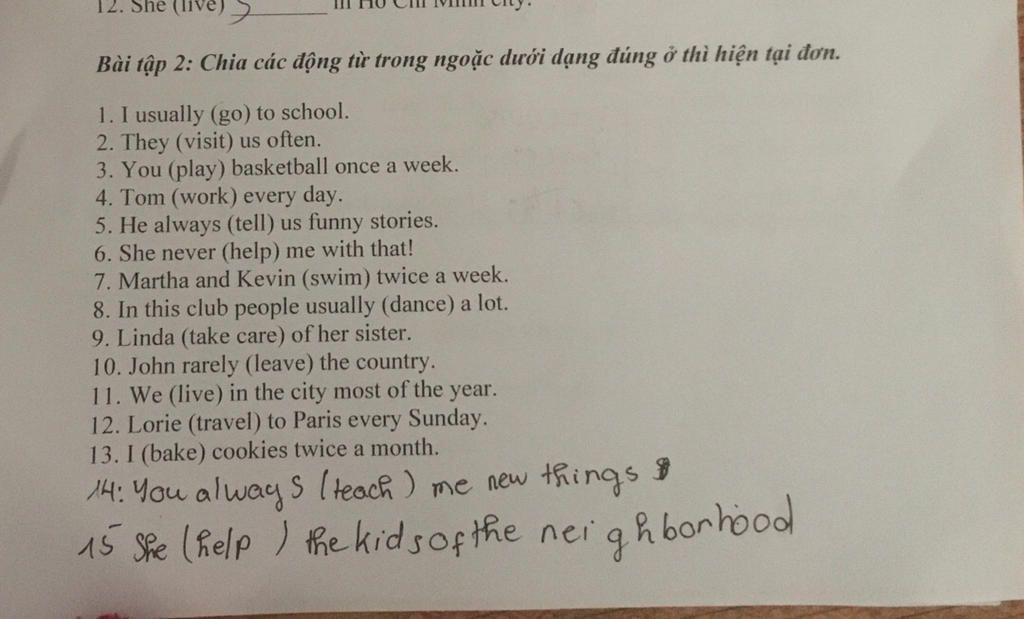 12. She (live) _______ in Ho Chi Minh city.
Bài tập 2: Chia các động từ trong ngoặc dưới dạng đúng ở thì hiện tại đơn.
1. I usually (go) to school.
2. They (visit) us often.
3. You (play) basketball once a week.
4. Tom (work) every day.
5. He always (tell) us funny stories.
6. She never (help) me with that!
7. Martha and Kevin (swim) twice a week.
8. In this club people usually (dance) a lot.
9. Linda (take care) of her sister.
10. John rarely (leave) the country.
11. We (live) in the city most of the year.
12. Lorie (travel) to Paris every Sunday.
13. I (bake) cookies twice a month.
14: You always (teach) me new things
15 She (help) the kids of the neighborhood